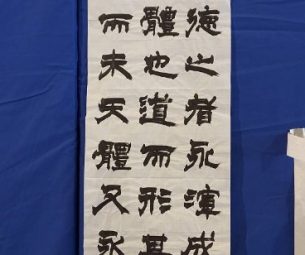 德之者永渾成
體也道而形其
而未天體又永